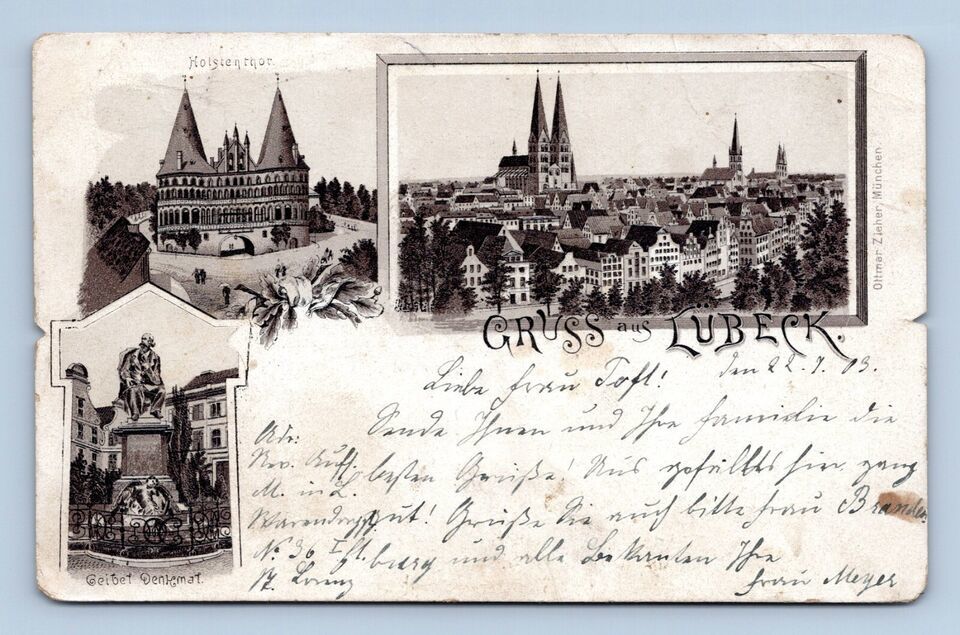 Holstenthor.
Ottmar Zieher, München
GRUSS aus LÜBECK.
Geibel Denkmal.
den 22.7.03.
Liebe Frau Toft!
Sende Ihnen und Ihre Familie die
besten Grüiße! Uns gefällts hir ganz
gut! Grüiße Sie auch bitte Frau Branden
burg und alle Bekanten Ihre
Frau Meyer
Adr:
Rev. Auff.
M. in L.
Warendorpst
No 36 I st.
St. Lorenz